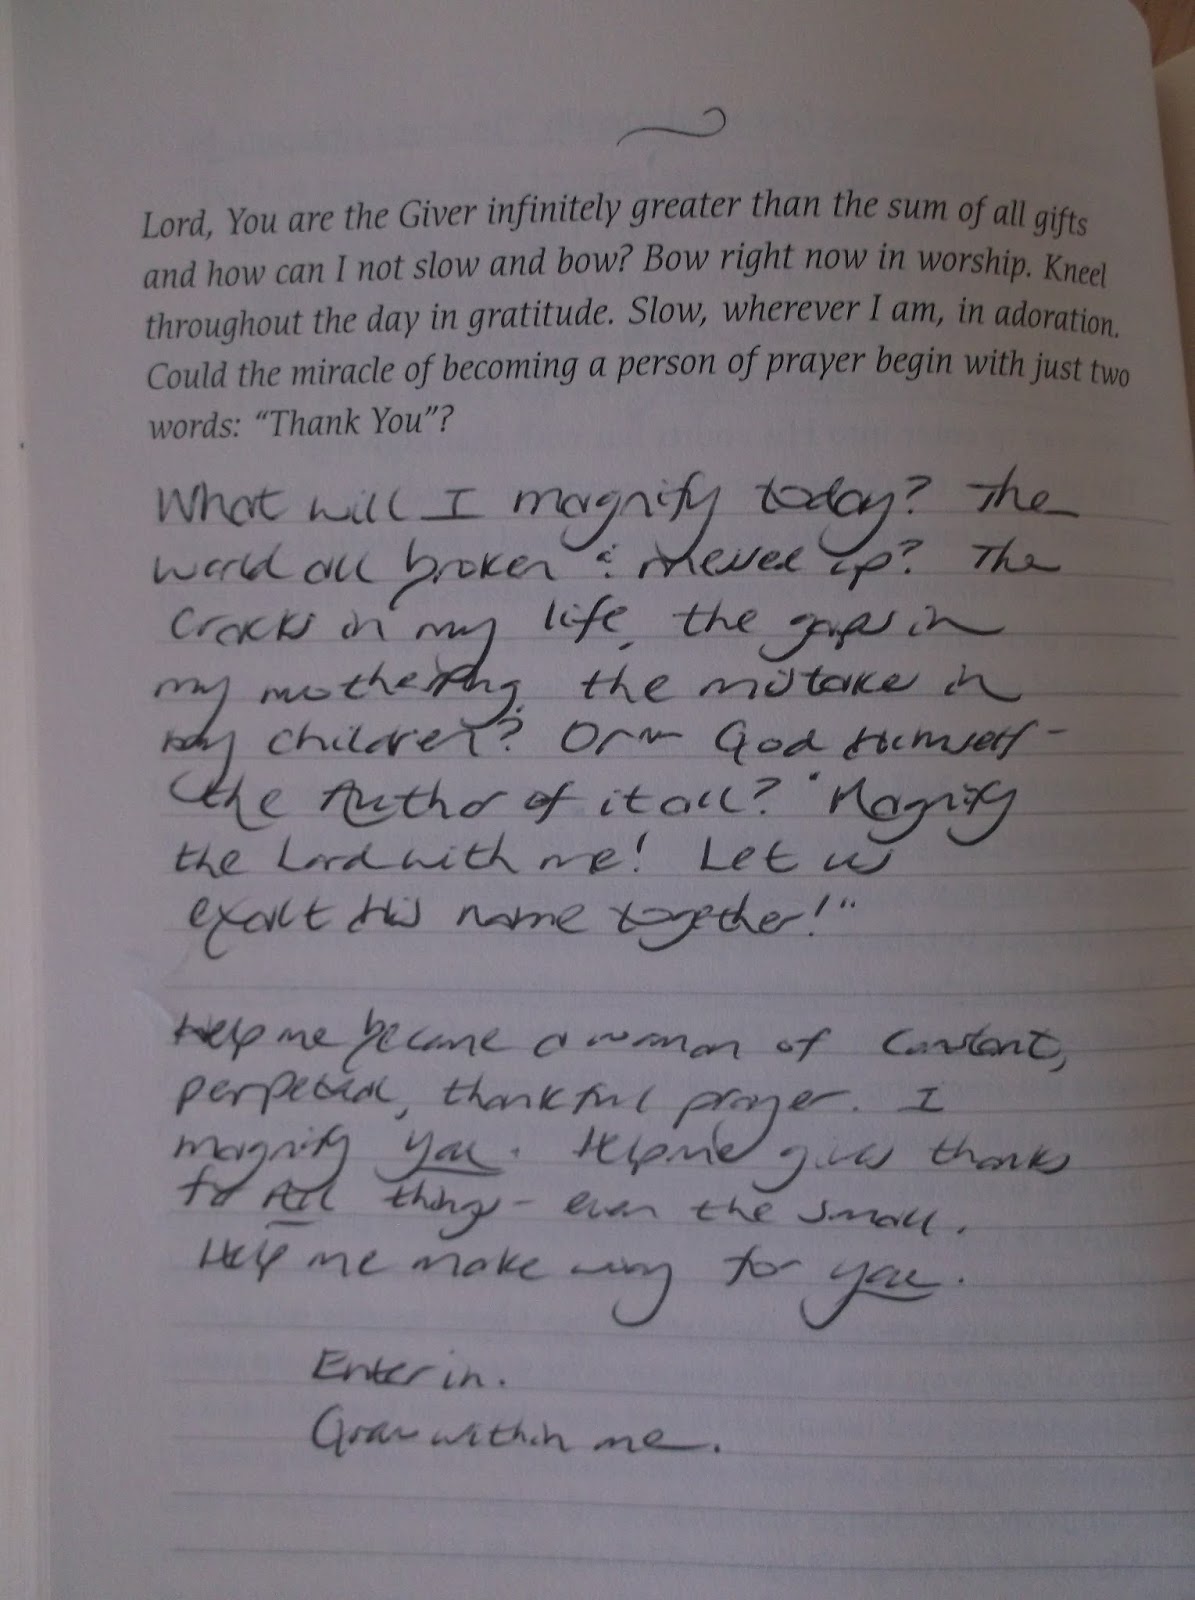 Lord, You are the Giver infinitely greater than the sum of all gifts
and how can I not slow and bow? Bow right now in worship. Kneel
throughout the day in gratitude. Slow, wherever I am, in adoration.
Could the miracle of becoming a person of prayer begin with just two
words: “Thank You”?
What will I magnify today? The
world all broken & messed up? The
cracks in my life, the gaps in
my mothering, the mistake in
my children? Or God Himself -
the Author of it all? "Magnify
the Lord with me! Let us
exalt His name together!"
Help me become a woman of constant,
perpetual, thankful prayer. I
magnify you. Help me give thanks
for All things - even the small.
Help me make way for you.
Enter in.
Grow within me.